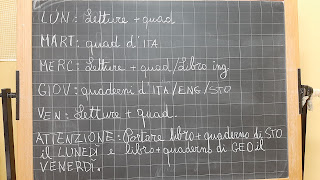 LUN: Letture + quad
MART: quad d'ITA
MERC: Letture + quad/Libro ing
GIOV: quaderni d'ITA/ENG/STO
VEN: Letture + quad.
ATTENZIONE: Portare libro + quaderno di STO
il LUNEDÌ e libro + quaderno di GEO il
VENERDÌ.